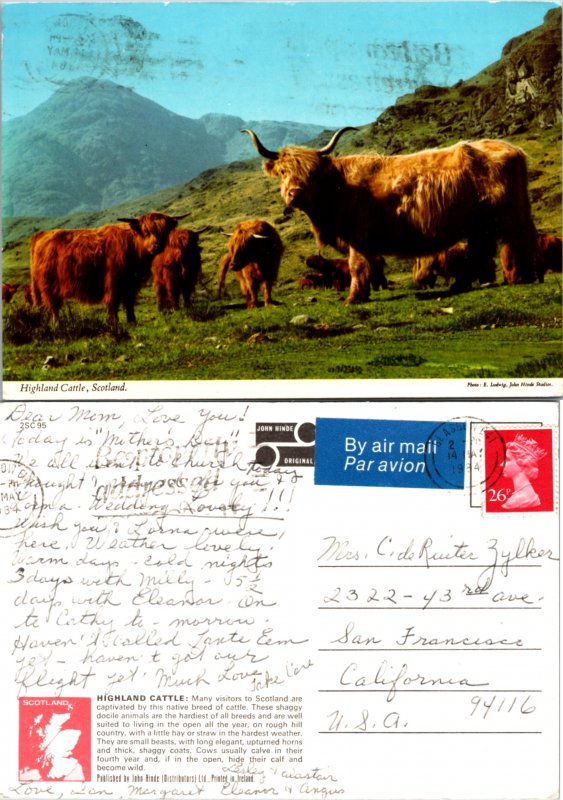 Highland Cattle, Scotland.
Photo: E. Ludwig, John Hinde Studios.
Dear Mom, Love You!
2SC95
Today is "Mother's Day"
We all went to church today
thought of you &
Wedding. Lovely!!!
Wish you & Lorna were
here. Weather lovely.
Warm days - cold nights
3 days with Milly - 5½
days with Eleanor. On
to Cathy to-morrow.
Haven't called Tante Em
yet - haven't got our
flight yet. Much Love
Take Care
JOHN HINDE
ORIGINAL
By air mail
Par avion
MAY
1984
26P
Mrs. C. de Ruiter Zylker
2322-43rd Ave.
San Francisco
California
94116
U.S.A.
SCOTLAND
HIGHLAND CATTLE: Many visitors to Scotland are
captivated by this native breed of cattle. These shaggy
docile animals are the hardiest of all breeds and are well
suited to living in the open all the year, on rough hill
country, with a little hay or straw in the hardest weather.
They are small beasts, with long elegant, upturned horns
and thick, shaggy coats. Cows usually calve in their
fourth year and, if in the open, hide their calf and
become wild.
Published by John Hinde (Distributors) Ltd., Printed in Ireland.
Lesley & Alastair
Love, Ian, Margaret Eleanor & Angus